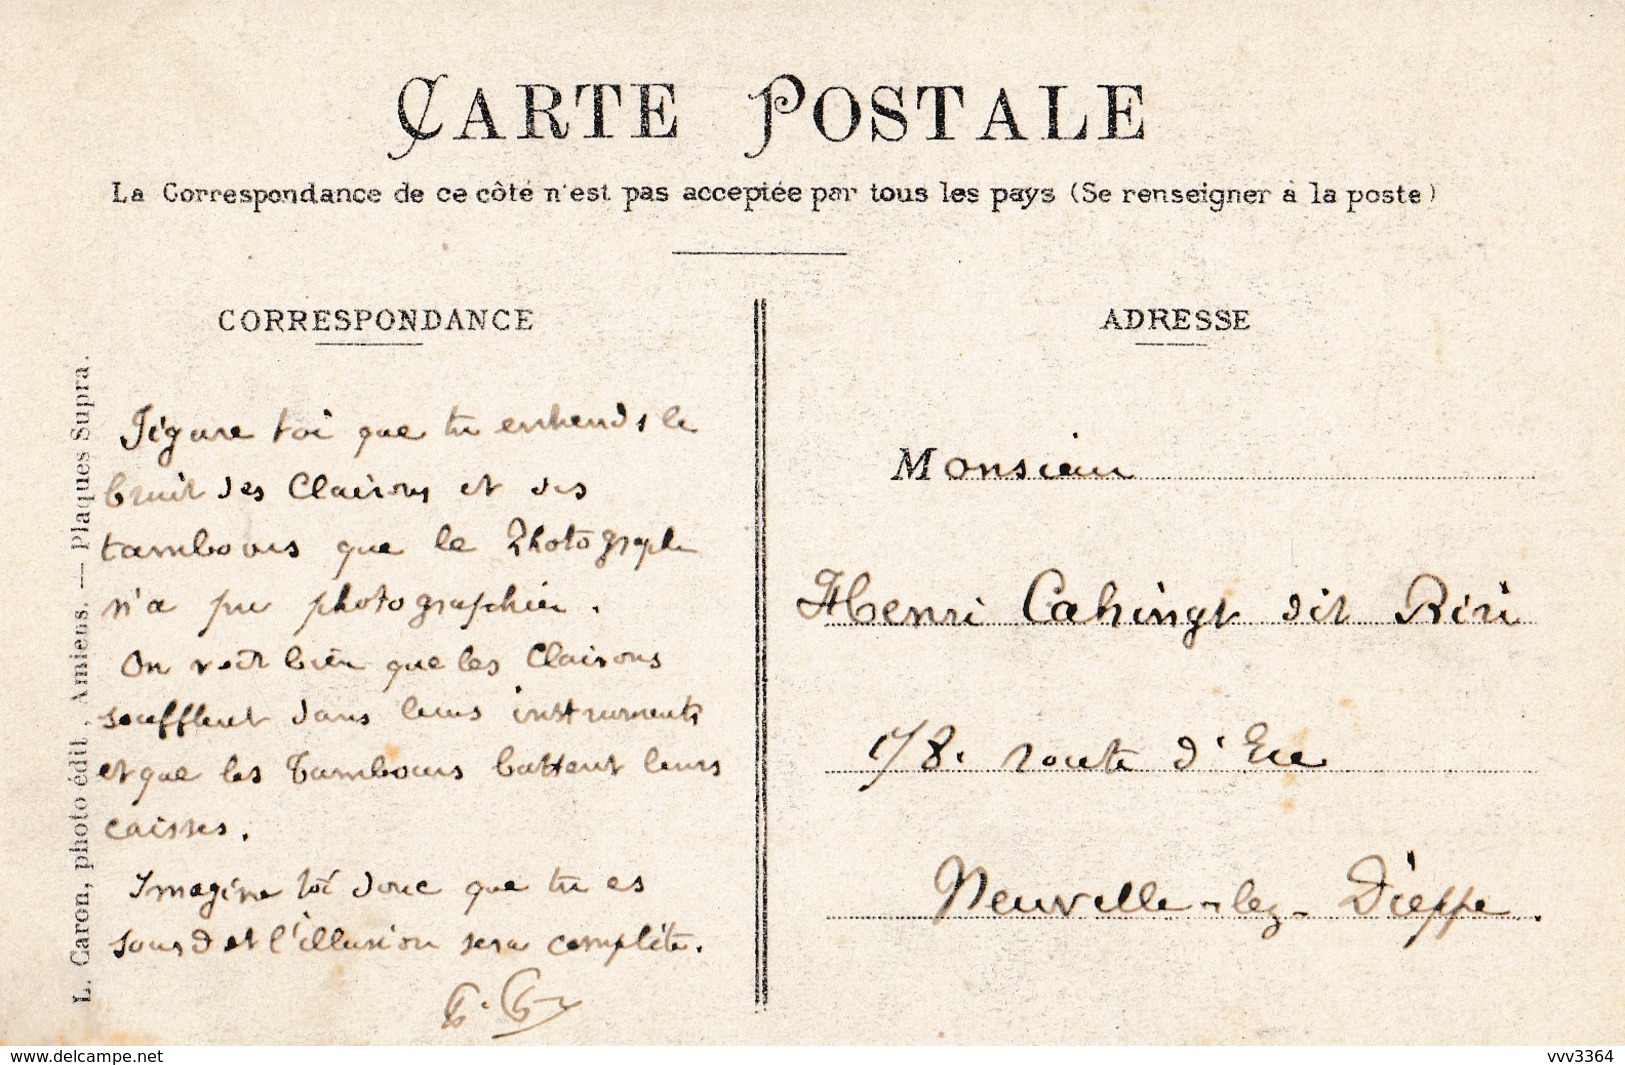 CARTE POSTALE
La Correspondance de ce côté n'est pas acceptée par tous les pays (Se renseigner à la poste)
CORRESPONDANCE
Figure toi que tu entends le
bruit des Clairons et des
tambours que le Photographe
n'a pu photographier.
On voit bien que les Clairons
soufflent dans leurs instruments
et que les Tambours battent leurs
caisses.
Imagine toi donc que tu es
sourd et l'illusion sera complète.
L. Caron, photo édit., Amiens. — Plaques Supra.
ADRESSE
Monsieur
Henri Cahingt dit Riri
178. route d'Eu
Neuville-lez-Dieppe.
www.delcampe.net
vvv3364